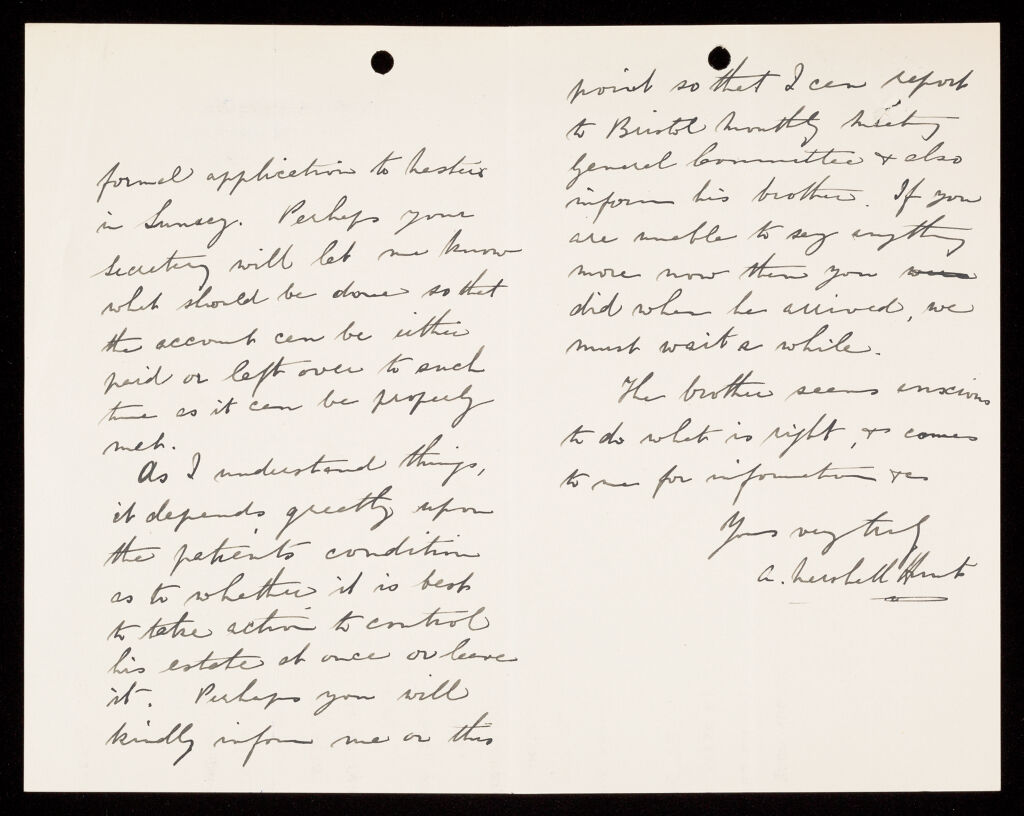 formal application to Master
in Lunacy. Perhaps your
secretary will let me know
what should be done so that
the account can be either
paid or left over to such
time as it can be properly
met.
As I understand things,
it depends greatly upon
the patients condition
as to whether it is best
to take action to control
his estate at once or leave
it. Perhaps you will
kindly inform me on this
point so that I can report
to Bristol Monthly Meeting
General Committee & also
inform his brother. If you
are unable to say anything
more now than you were
did when he arrived, we
must wait a while.
The brother seems anxious
to do what is right, & comes
to me for information &c
Yours very truly
A. Marshall Hunt